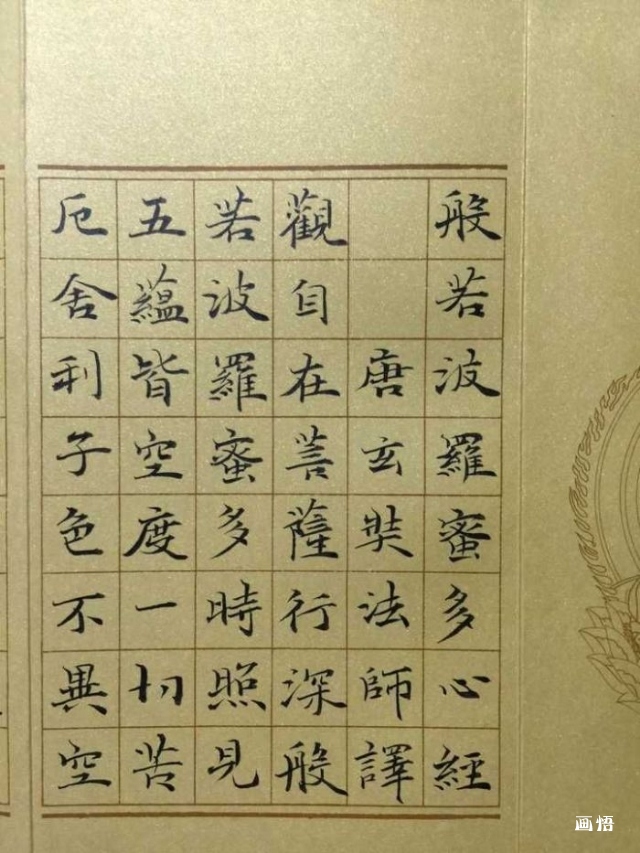 般若波羅蜜多心經
唐玄奘法師譯
觀自在菩薩行深般
若波羅蜜多時照見
五蘊皆空度一切苦
厄舍利子色不異空
画悟